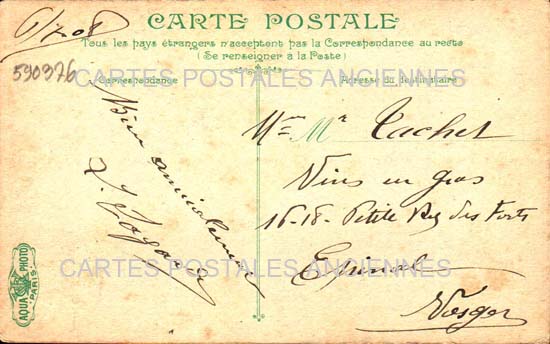 CARTE POSTALE
Tous les pays étrangers n'acceptent pas la Correspondance au recto
(Se renseigner à la Poste)
Correspondance
Adresse du destinataire
530376
CARTES POSTALES ANCIENNES
Bien amicalement
Mr Tachet
Vins en gros
16-18- Petite Rue des Forts
Epinal
Vosges
CARTES POSTALES ANCIENNES
AQUA PHOTO
PARIS